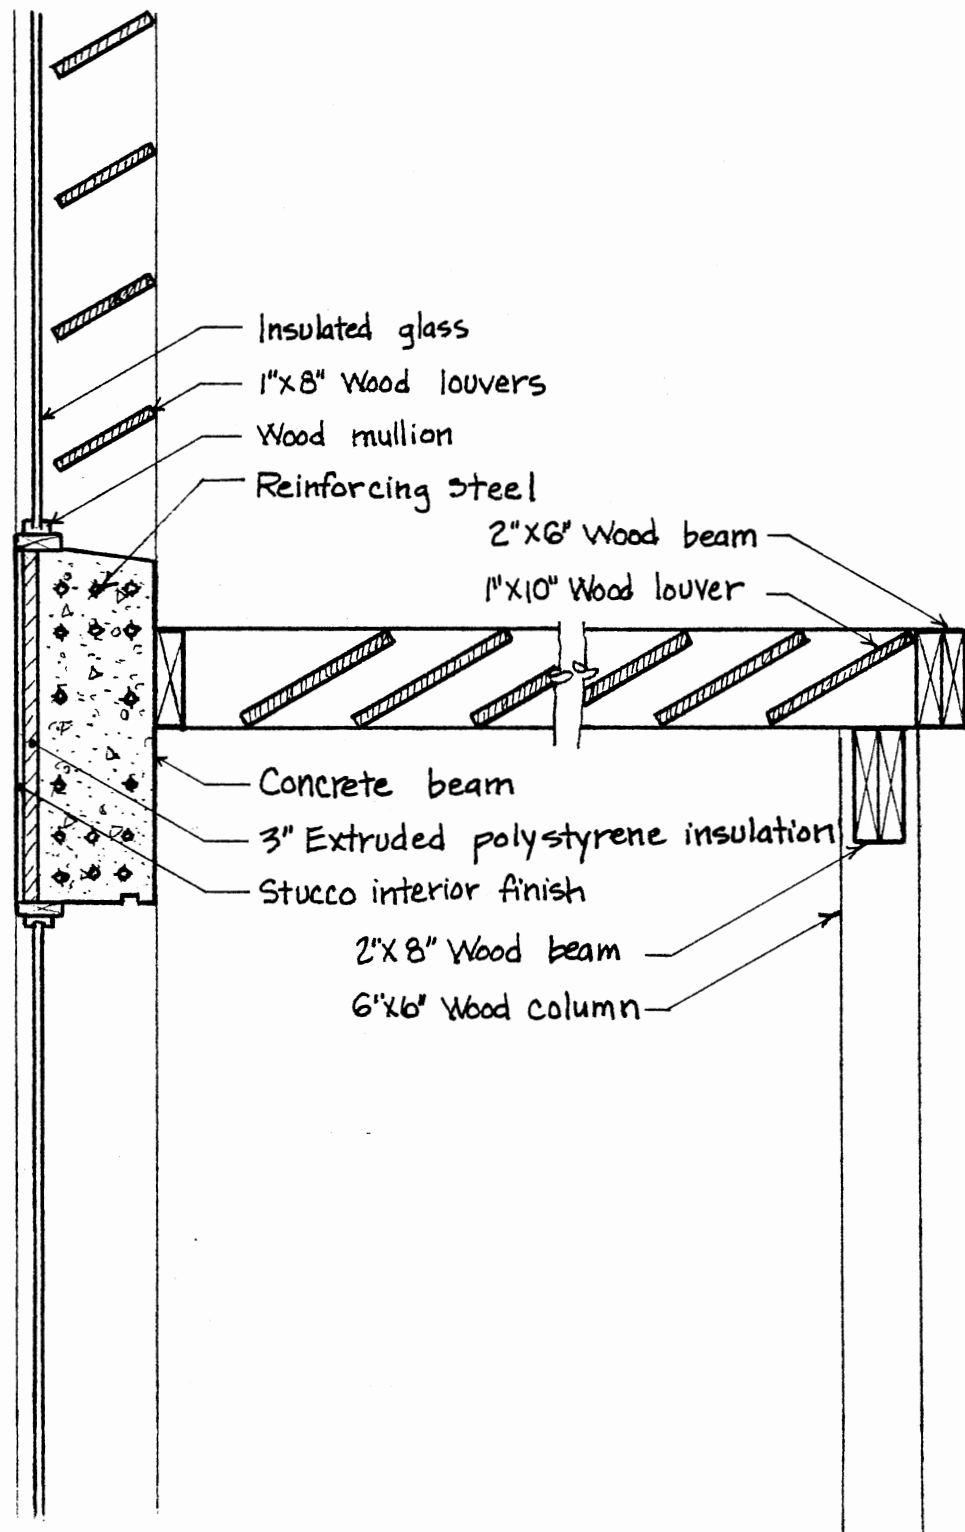 Insulated glass
1"X8" Wood louvers
Wood mullion
Reinforcing steel
2"X6" Wood beam
1"X10" Wood louver
Concrete beam
3" Extruded polystyrene insulation
Stucco interior finish
2"X8" Wood beam
6"X6" Wood column